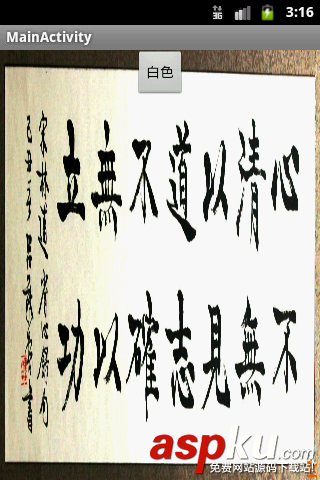 3G
3:16
MainActivity
白色
心不
清無
以見
道志
不確
無以
立功
宋林逋省心錄句
aspku.com
免费网站源码下载站!